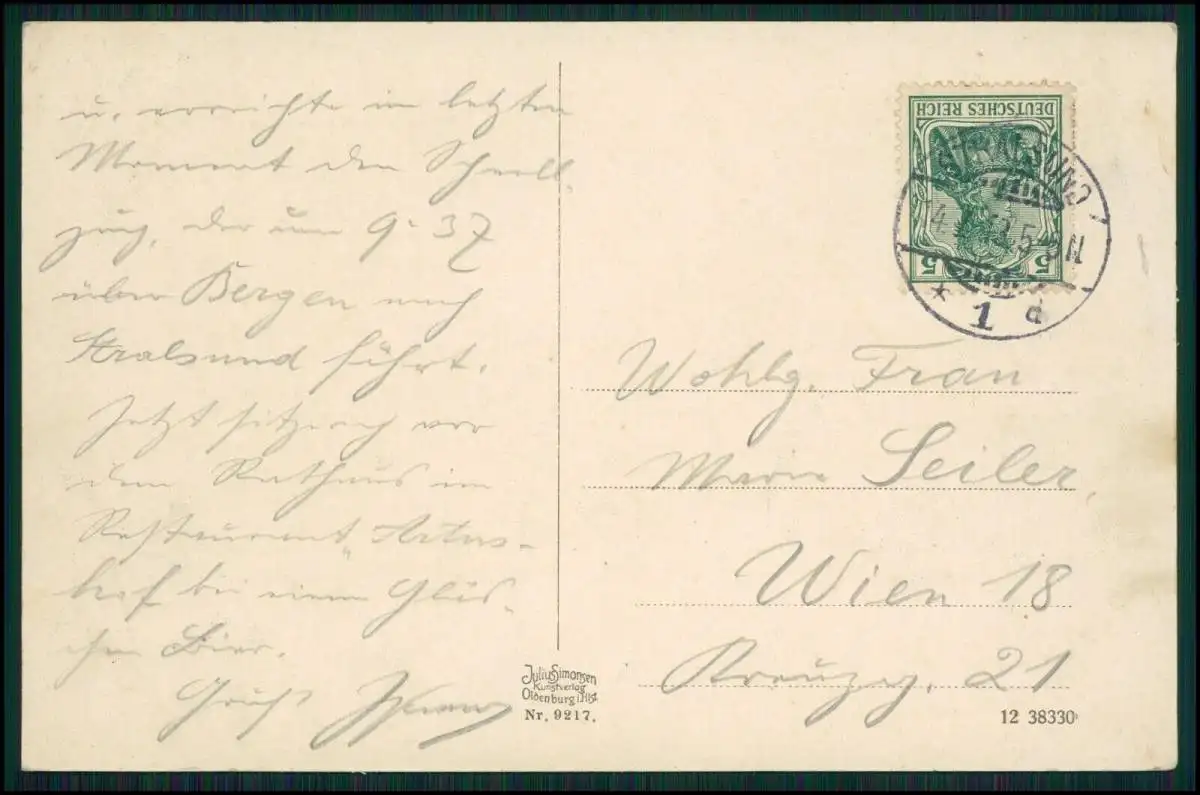 u. erreichte im letzten
Moment den Schnell-
zug, der um 9:37
über Bergen nach
Stralsund führt.
Jetzt sitze ich vor
dem Rathaus im
Restaurant "Artus-
hof bei einem Gläs-
chen Bier.
Gruß
DEUTSCHES REICH
5 5
STRALSUND
5-6 N
* 1 d
Wohlg. Frau
Marie Seiler,
Wien 18
Kreuzg. 21
Julius Simonsen
Kunstverlag
Oldenburg i. Hlst.
Nr. 9217.
12 38330